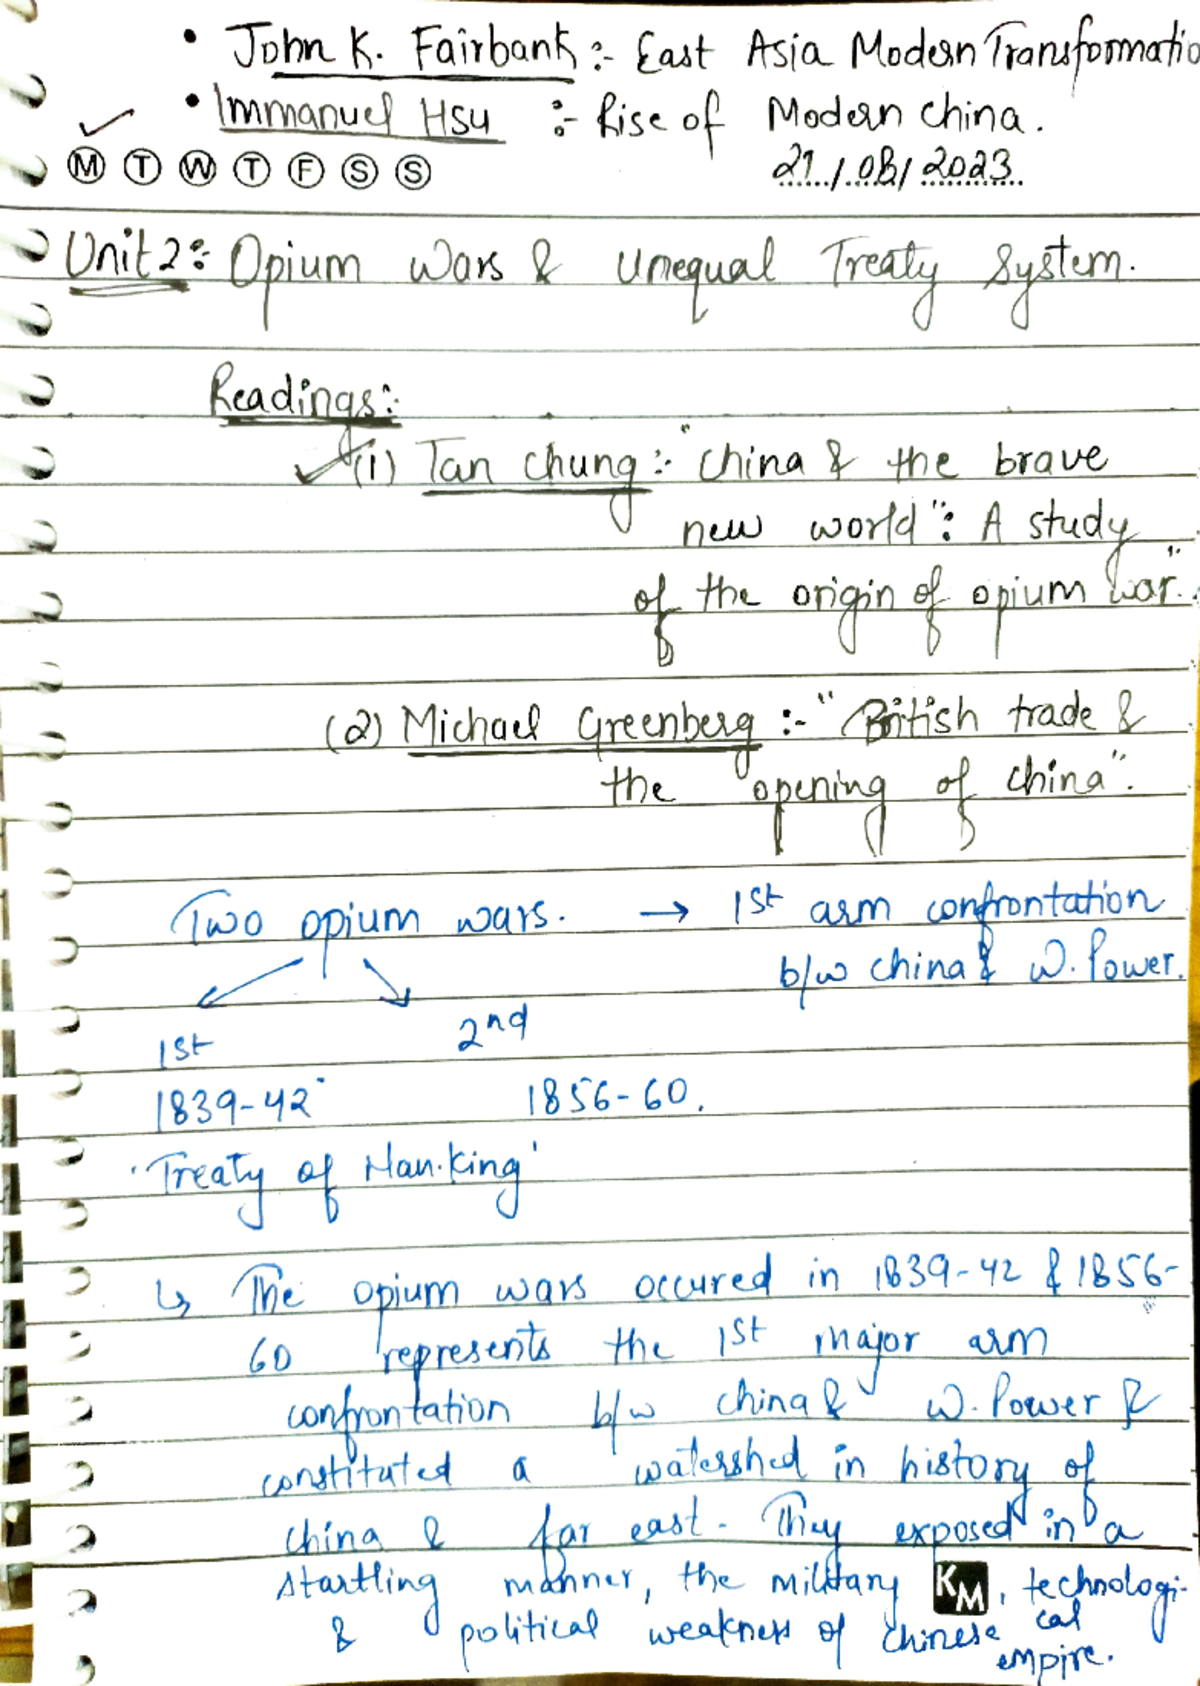 • John K. Fairbank :- East Asia Modern Transformatio
• Immanuel Hsu :- Rise of Modern China.
M T W T F S S 21/08/2023
Unit 2: Opium Wars & Unequal Treaty System.
Readings:-
(i) Tan Chung :- "China & the brave
new world": A study
of the origin of opium war".
(2) Michael Greenberg :- "British trade &
the opening of China".
Two opium wars. → 1st arm confrontation
b/w china & W. Power.
1st 2nd
1839-42 1856-60.
'Treaty of Nan-King'
↳ The opium wars occured in 1839-42 & 1856-
60 represents the 1st major arm
confrontation b/w china & W. Power &
constituted a watershed in history of
china & far east. They exposed in a
startling manner, the military KM, technologi-
& political weakness of chinese cal
empire.